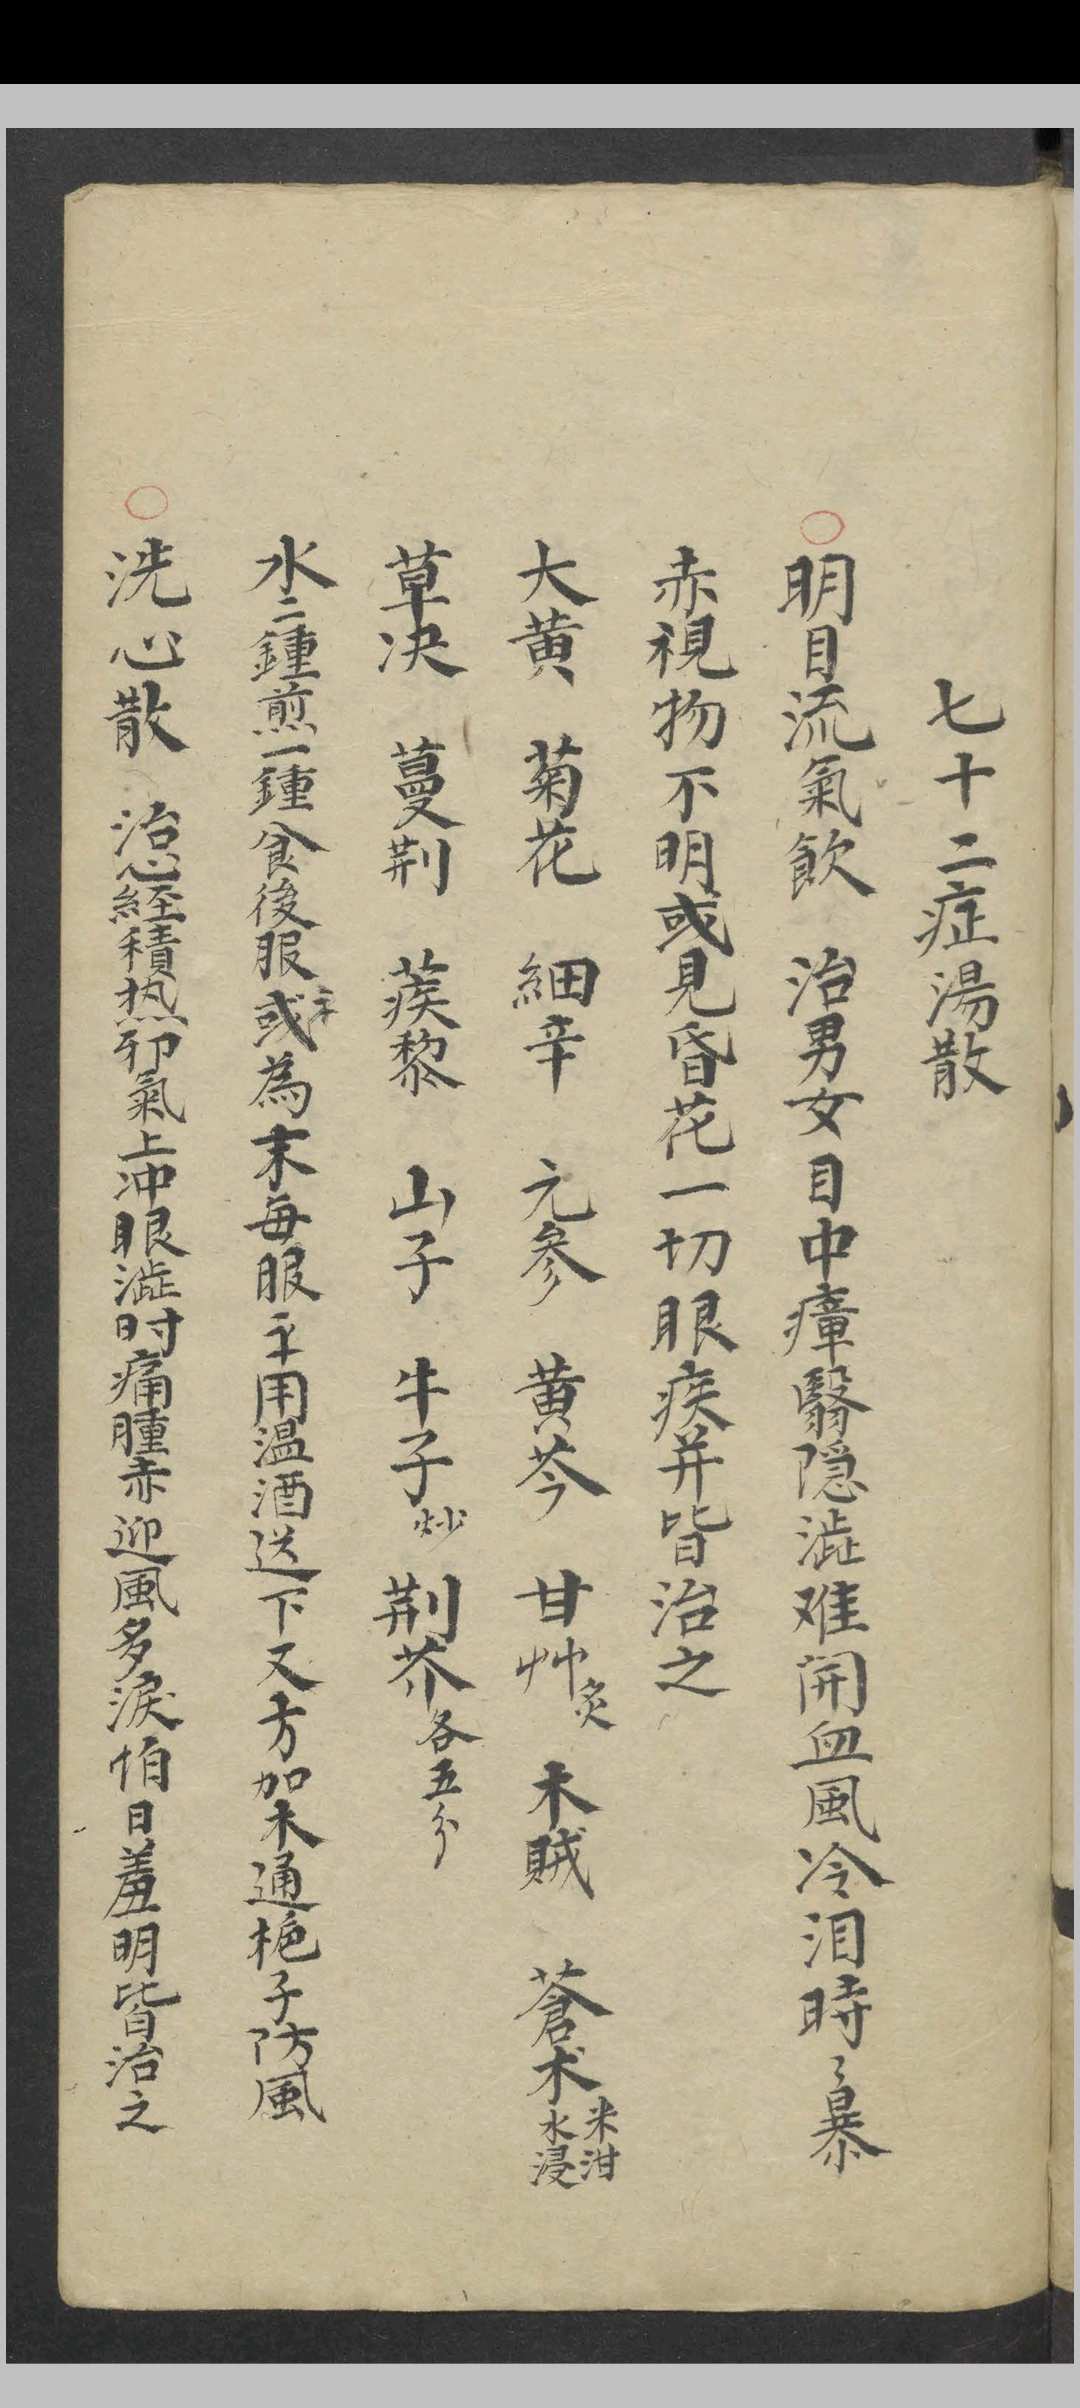 七十二症湯散
明目流氣飲 治男女目中瘴翳隐澁难開血風冷泪時〻暴
赤視物不明或見昏花一切眼疾并皆治之
大黄 菊花 細辛 元参 黄芩 甘艸炙 木賊 蒼术米泔水浸
草决 蔓荆 蒺藜 山子 牛子炒 荆芥各五分
水二鍾煎一鍾食後服或為末每服 用温酒送下又方加木通栀子防風
洗心散 治心経積热邪氣上冲眼澁时痛腫赤迎風多淚怕日羞明皆治之